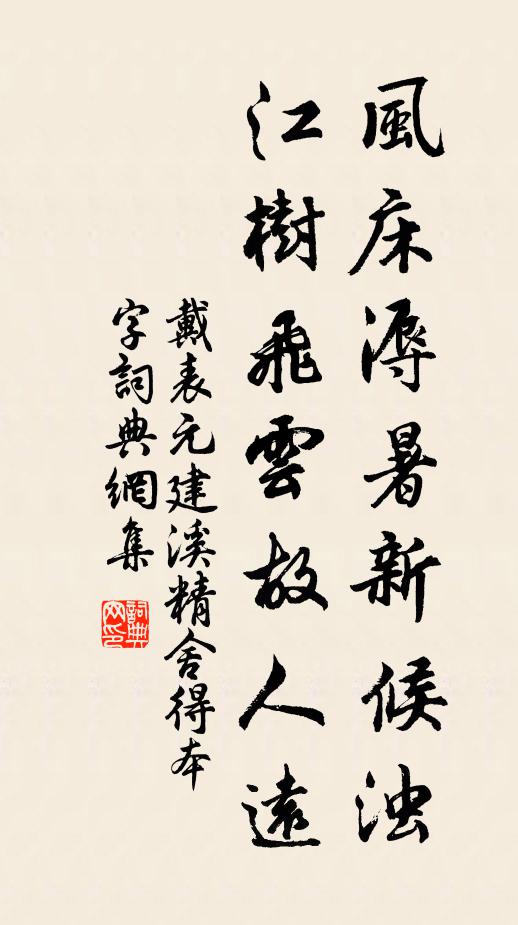 風床溽暑新候浊
江樹飛雲故人遠
戴表元建溪精舍得本
字詞典網集
詞典网印